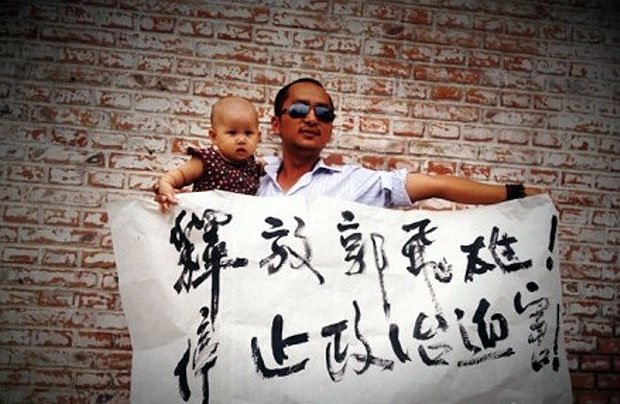 釋放郭飛雄!
停止政治迫害!